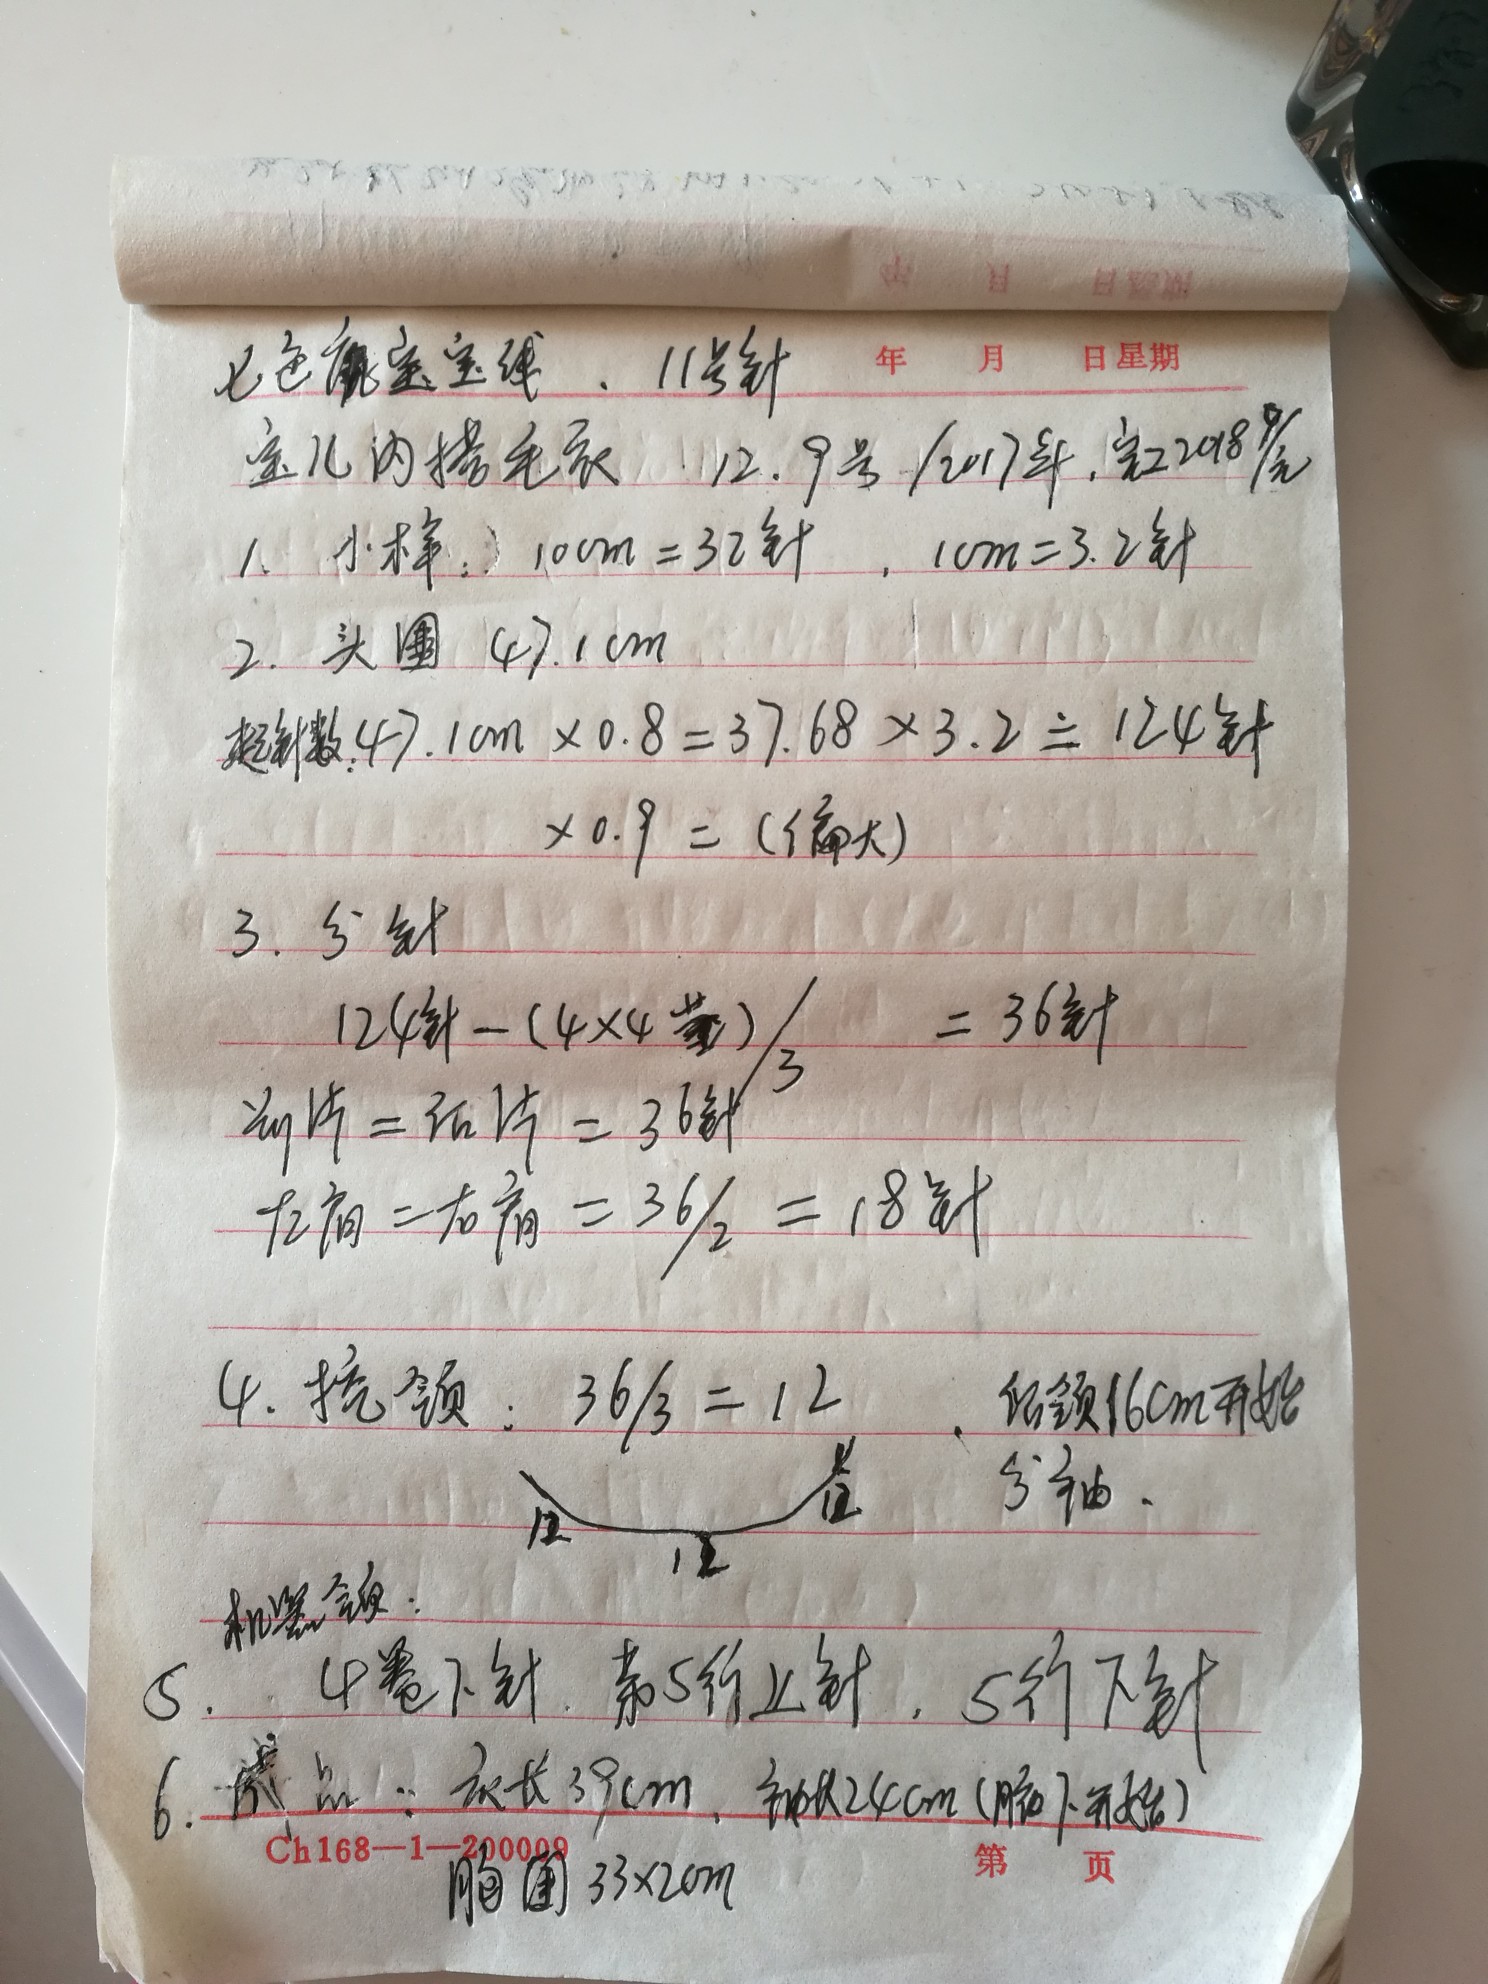 七色鹿宝宝线 . 11号针
年 月 日 星期
宝儿内搭毛衣 12.9号/2017年,完工2018
1. 小样:) 10cm=32针 , 1cm=3.2针
2. 头围 47.1cm
起针数:47.1cm×0.8=37.68×3.2≐124针
×0.9=(偏大)
3. 分针
124针-(4×4茎)/3 =36针
前片=后片=36针
左肩=右肩=36/2=18针
4. 挖领: 36/3=12 , 后领16cm开始
分袖.
12 12 12
机器领:
5. 4卷下针.第5行上针,5行下针
6. 成品: 衣长39cm, 袖长24cm(腋下开始)
Ch168—1—200009 第 页
胸围33×2cm